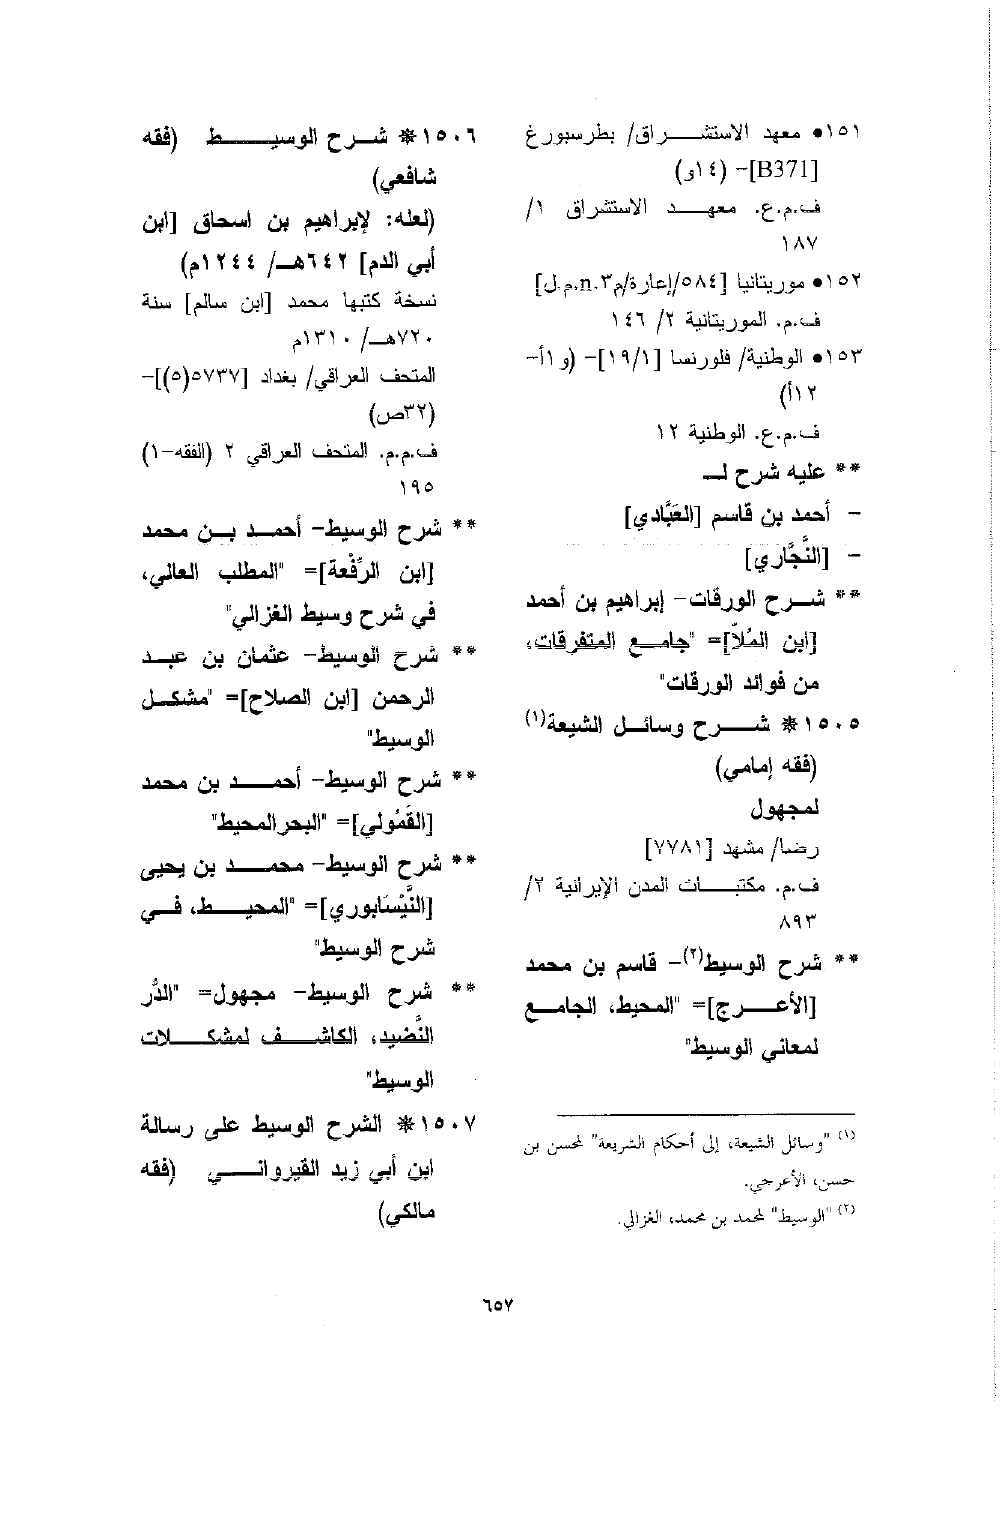 ١٥١● معهد الاستشـــراق/ بطرسبورغ
[B371]– (١٤و)
ف.م.ع. معهـــد الاستشراق ١/
١٨٧
١٥٢● موريتانيا [٥٨٤/إعارة/م٣.n.م.ل]
ف.م. الموريتانية ٢/ ١٤٦
١٥٣● الوطنية/ فلورنسا [١٩/١]– (و١أ–
١٢أ)
ف.م.ع. الوطنية ١٢
** عليه شرح لـــ
– أحمد بن قاسم [العَبَّادي]
– [النَّجَّاري]
** شـــرح الورقات– إبراهيم بن أحمد
[ابن المُلاّ]= "جامـــع المتفرقات،
من فوائد الورقات"
١٥٠٥❊ شـــرح وسائـــل الشيعة(١)
(فقه إمامي)
لمجهول
رضا/ مشهد [٧٧٨١]
ف.م. مكتبـــات المدن الإيرانية ٢/
٨٩٣
** شرح الوسيط(٢)– قاسم بن محمد
[الأعـــرج]= "المحيط، الجامـــع
لمعاني الوسيط"
(١) "وسائل الشيعة، إلى أحكام الشريعة" لمحسن بن
حسن، الأعرجي.
(٢) "الوسيط" لمحمد بن محمد، الغزالي.
١٥٠٦❊ شـــرح الوسيـــط (فقه
شافعي)
(لعله: لإبراهيم بن اسحاق [ابن
أبي الدم] ٦٤٢هـ/ ١٢٤٤م)
نسخة كتبها محمد [ابن سالم] سنة
٧٢٠هـ/ ١٣١٠م
المتحف العراقي/ بغداد [٥٧٣٧(٥)]–
(٣٢ص)
ف.م.م. المتحف العراقي ٢ (الفقه–١)
١٩٥
** شرح الوسيط– أحمـــد بـــن محمد
[ابن الرِّفْعة]= "المطلب العالي،
في شرح وسيط الغزالي"
** شرح الوسيط– عثمان بن عبـــد
الرحمن [ابن الصلاح]= "مشكـــل
الوسيط"
** شرح الوسيط– أحمـــد بن محمد
[القَمُولي]= "البحرالمحيط"
** شرح الوسيط– محمـــد بن يحيى
[النَّيْسَابوري]= "المحيـــط، فـــي
شرح الوسيط"
** شرح الوسيط– مجهول= "الدُّر
النَّضيد، الكاشـــف لمشكـــلات
الوسيط"
١٥٠٧❊ الشرح الوسيط على رسالة
ابن أبي زيد القيروانـــي (فقه
مالكي)
٦٥٧